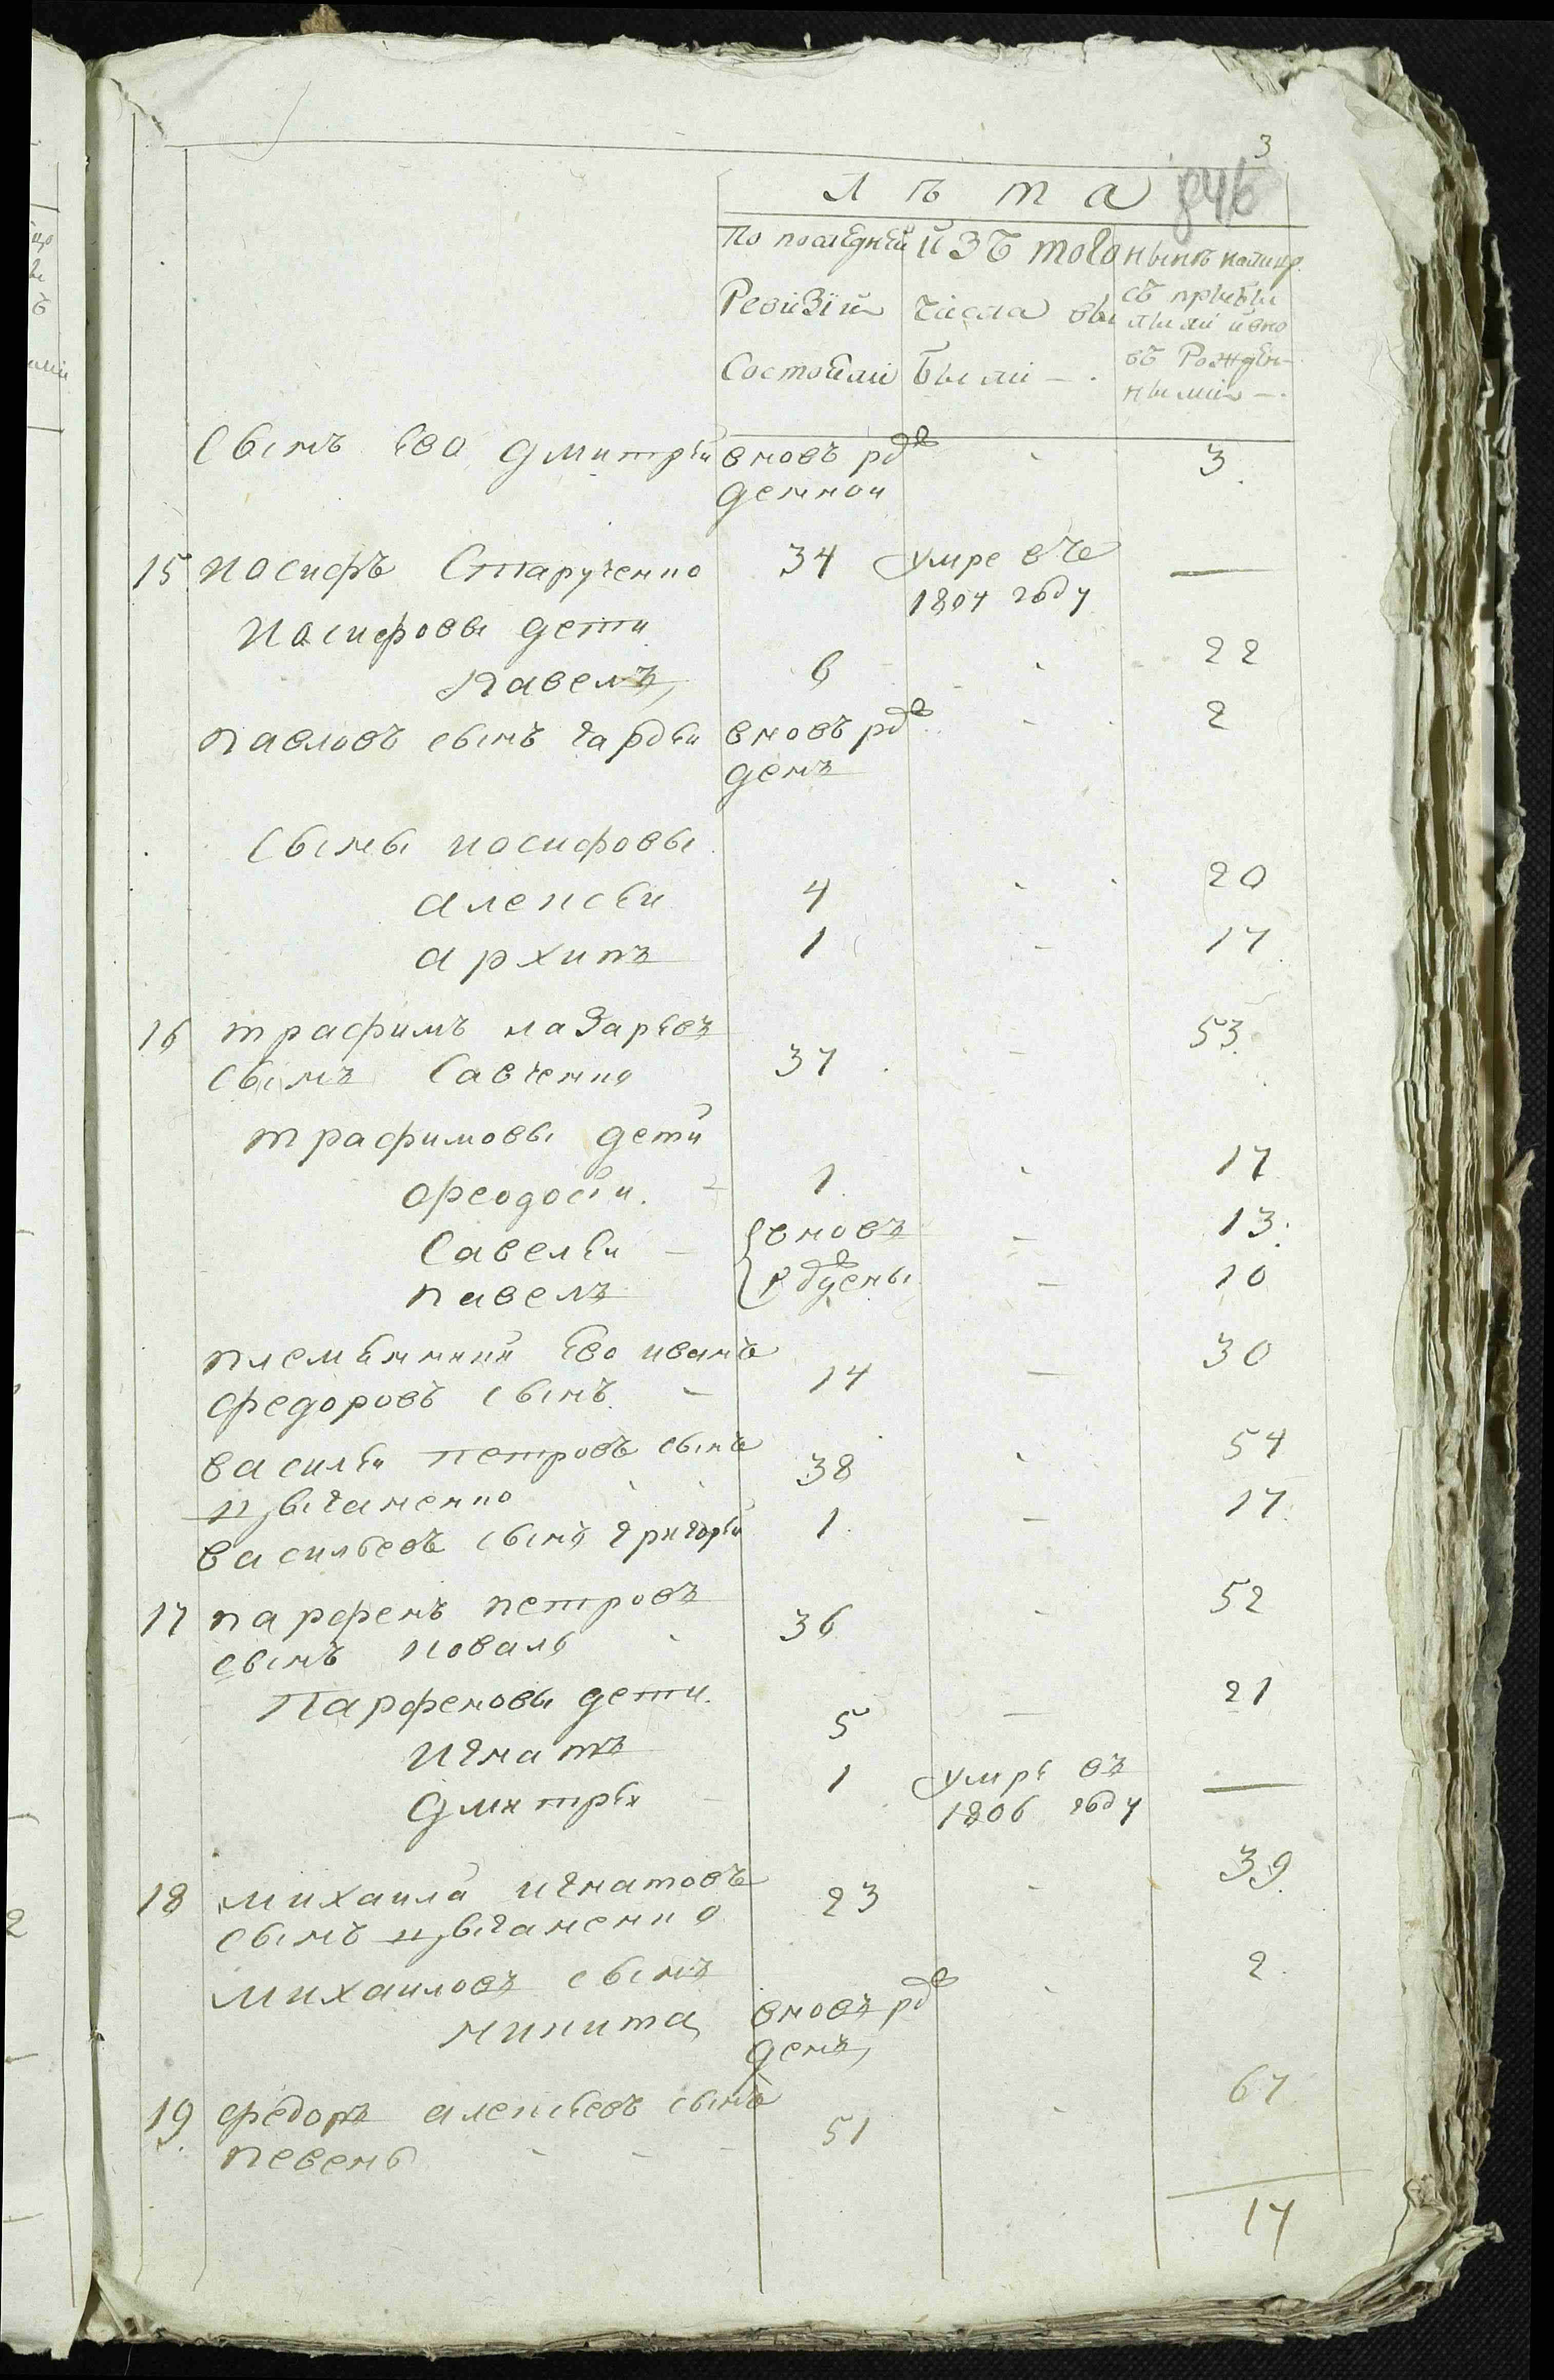 3
846
Лѣта
По последней изъ того нынѣ налицо
Ревизіи числа вы съ прибы
лыми и вно
Состояли были - въ рожден-
ными -
Сынъ Его дмитреи вновъ рож 3
денной
15 иосифъ Старученко 34 умре въ —
1804 году
иосифовы дети
Павелъ 6 - 22
павловъ сынъ гардеи вновъ рож - 2
денъ
Сыны иосифовы
алексеи 4 - 20
архипъ 1 - 17
16 трафимъ лазаревъ 53
сынъ Савченко 37 -
трафимовы дети
феодосіи - 1 - 17
Савелеи - вновъ - 13
павелъ рождены - 10
племянникъ Ево иванъ 30
федоровъ сынъ - 14 -
василеи петровъ сынъ 38 - 54
цыганенко
васильевъ сынъ григореи 1 - 17
17 парфенъ петровъ 36 - 52
сынъ коваль
Парфеновы дети
игнатъ 5 - 21
дмитреи - 1 умре въ —
1806 году
18 михаила игнатовъ 23 - 39
сынъ цыганенко
михаиловъ сынъ 2
никита вновъ рож -
денъ
19 федоръ алексеевъ сынъ 51 - 67
певень - - -
17